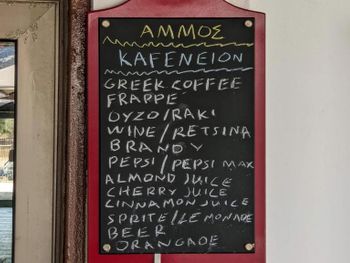 ΑΜΜΟΣ
ΚΑΦΕΝΕΙΟΝ
GREEK COFFEE
FRAPPE
OYZO/RAKI
WINE/RETSINA
BRANDY
PEPSI/PEPSI MAX
ALMOND JUICE
CHERRY JUICE
CINNAMON JUICE
SPRITE/LEMONADE
BEER
ORANGADE